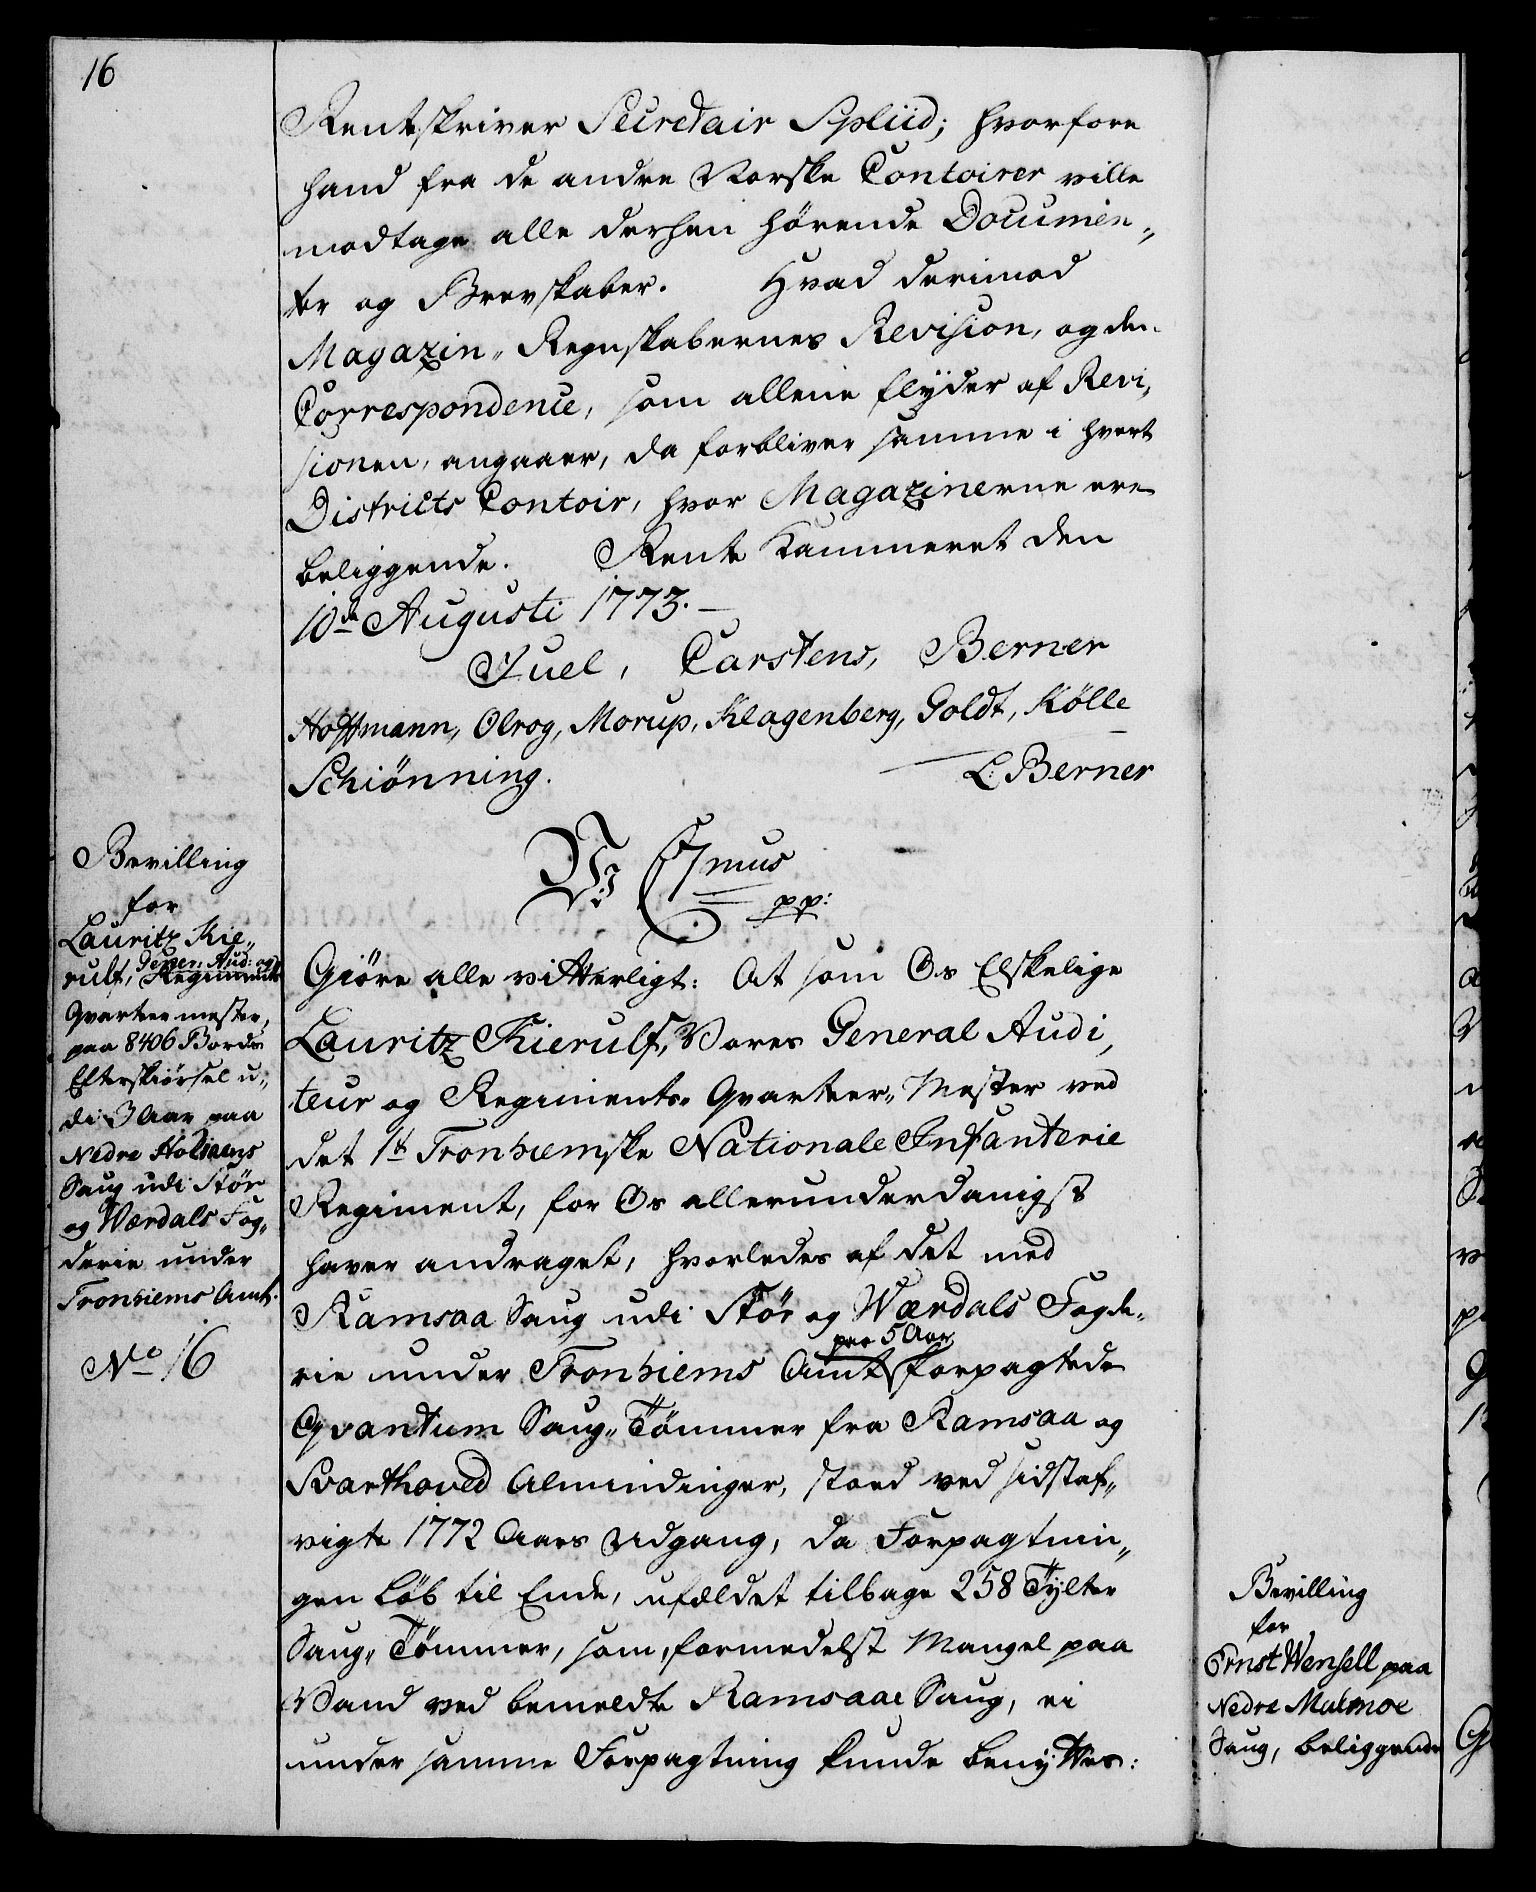 16
Rentskriver Secretair Spliid; hvorfore
hand fra de andre Norske Contoirer ville
modtage alle derhen hørende Documen„
ter og Brevskaber. Hvad derimod
Magazin„ Regnskabernes Revision, og den
Correspondence, som allene flyder af Revi„
sionen, angaaer, da forbliver samme i hvert
Districts Contoir, hvor Magazinerne ere
beliggende. Rente Kammeret den
10de Augusti 1773.
Juel, Carstens, Berner
Hoffmann, Olrog, Morup, Klagenberg, Goldt, Kølle
Schiønning. L. Berner
Bevilling
for
Lauritz Kie„
rulf, Gener: Aud: og Regiments
Qvarteermester,
paa 8406 Bords
Efterskiørsel u„
di 3 Aar paa
Nedre Holmens
Saug udi Stør
og Wærdals Fog„
derie under
Tronhiems Amt.
No 16
W C 7mus
pp:
Giøre alle vitterligt: At som Os Elskelige
Lauritz Kierulf, Vores General Audi„
teur og Regiments„ Qvarteer„ Mester ved
det 1te Tronhiemske Nationale Infanterie
Regiment, for Os allerunderdanigst
haver andraget, hvorledes af det med
Ramsaa Saug udi Stør og Wærdals Fogde„
rie under Tronhiems Amt paa 5 Aar forpagtede
Qvantum Saug„ Tømmer fra Ramsaa og
Svarthoved Almindinger, stoed ved sidstaf„
vigte 1772 Aars Udgang, da Forpagtnin„
gen løb til Ende, ufældet tilbage 258 Tylter
Saug„ Tømmer, som, formedelst Mangel paa
Vand ved bemeldte Ramsaae Saug, ei
under samme Forpagtning kunde benyttes:
Bevilling
for
Ernst Wensell paa
Nedre Mulmoe
Saug, beliggende